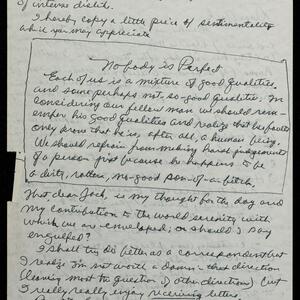 of intense dislike.
I hereby copy a little piece of sentimentality
which you may appreciate
Nobody is Perfect
Each of us is a mixture of good qualities
and some perhaps not-so-good qualities. In
considering our fellow man we should rem-
ember his good qualities and realize that his faults
only prove that he is, after all, a human being.
We should refrain from making harsh judgement
of a person just because he happens to be
a dirty, rotten, no-good son-of-a-bitch.
That dear Jack, is my thought for the day and
my contribution to the world serenity with
which we are enveloped, or should I say
engulfed?
I shall try to do better as a correspondent but
I realize I'm not worth a damn in that direction
(leaving most the question of other directions) but
I really really enjoy receiving letters.